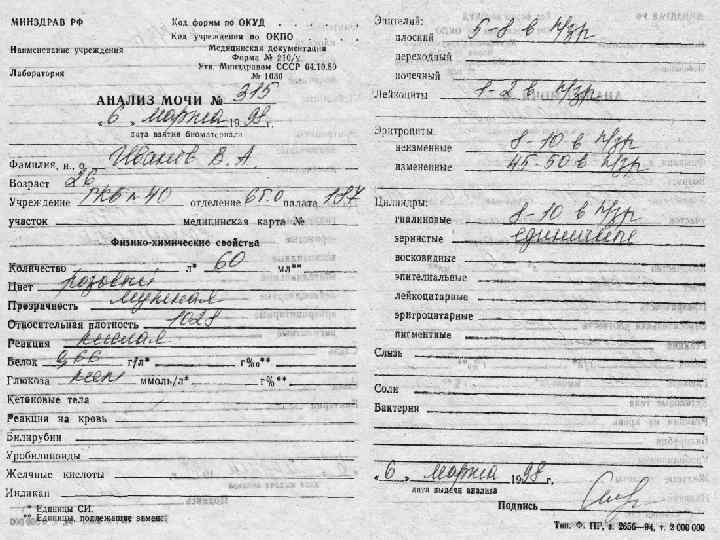 МИНЗДРАВ РФ
Код формы по ОКУД . . . . .
Код учреждения по ОКПО . . . .
Наименование учреждения
Медицинская документация
Форма № 210/у
Утв. Минздравом СССР 04.10.80
№ 1030
Лаборатория
АНАЛИЗ МОЧИ № 315
„ 6 „ марта 1998 г.
дата взятия биоматериала
Фамилия, и., о. Иванов В. А.
Возраст 26
Учреждение ГКБ № 40 отделение палата 197
участок медицинская карта №
Физико-химические свойства
Количество л* 60 мл**
Цвет розовый
Прозрачность мутная
Относительная плотность 1028
Реакция кислая
Белок 0,66 г/л* г%о**
Глюкоза ммоль/л* г%**
Кетоновые тела
Реакция на кровь
Билирубин
Уробилиноиды
Желчные кислоты
Индикан
* Единицы СИ.
** Единицы, подлежащие замене.
Эпителий:
плоский 5-8 в п/зр
переходный
почечный
Лейкоциты 1-2 в п/зр
Эритроциты:
неизменные 8-10 в п/зр
измененные 45-50 в п/зр
Цилиндры:
гиалиновые 8-10 в п/зр
зернистые единичные
восковидные
эпителиальные
лейкоцитарные
эритроцитарные
пигментные
Слизь
Соли
Бактерии
„ 6 „ марта 1998 г.
дата выдачи анализа
Подпись
Тип. Ф. ПР, з. 2656—94, т. 2 000 000